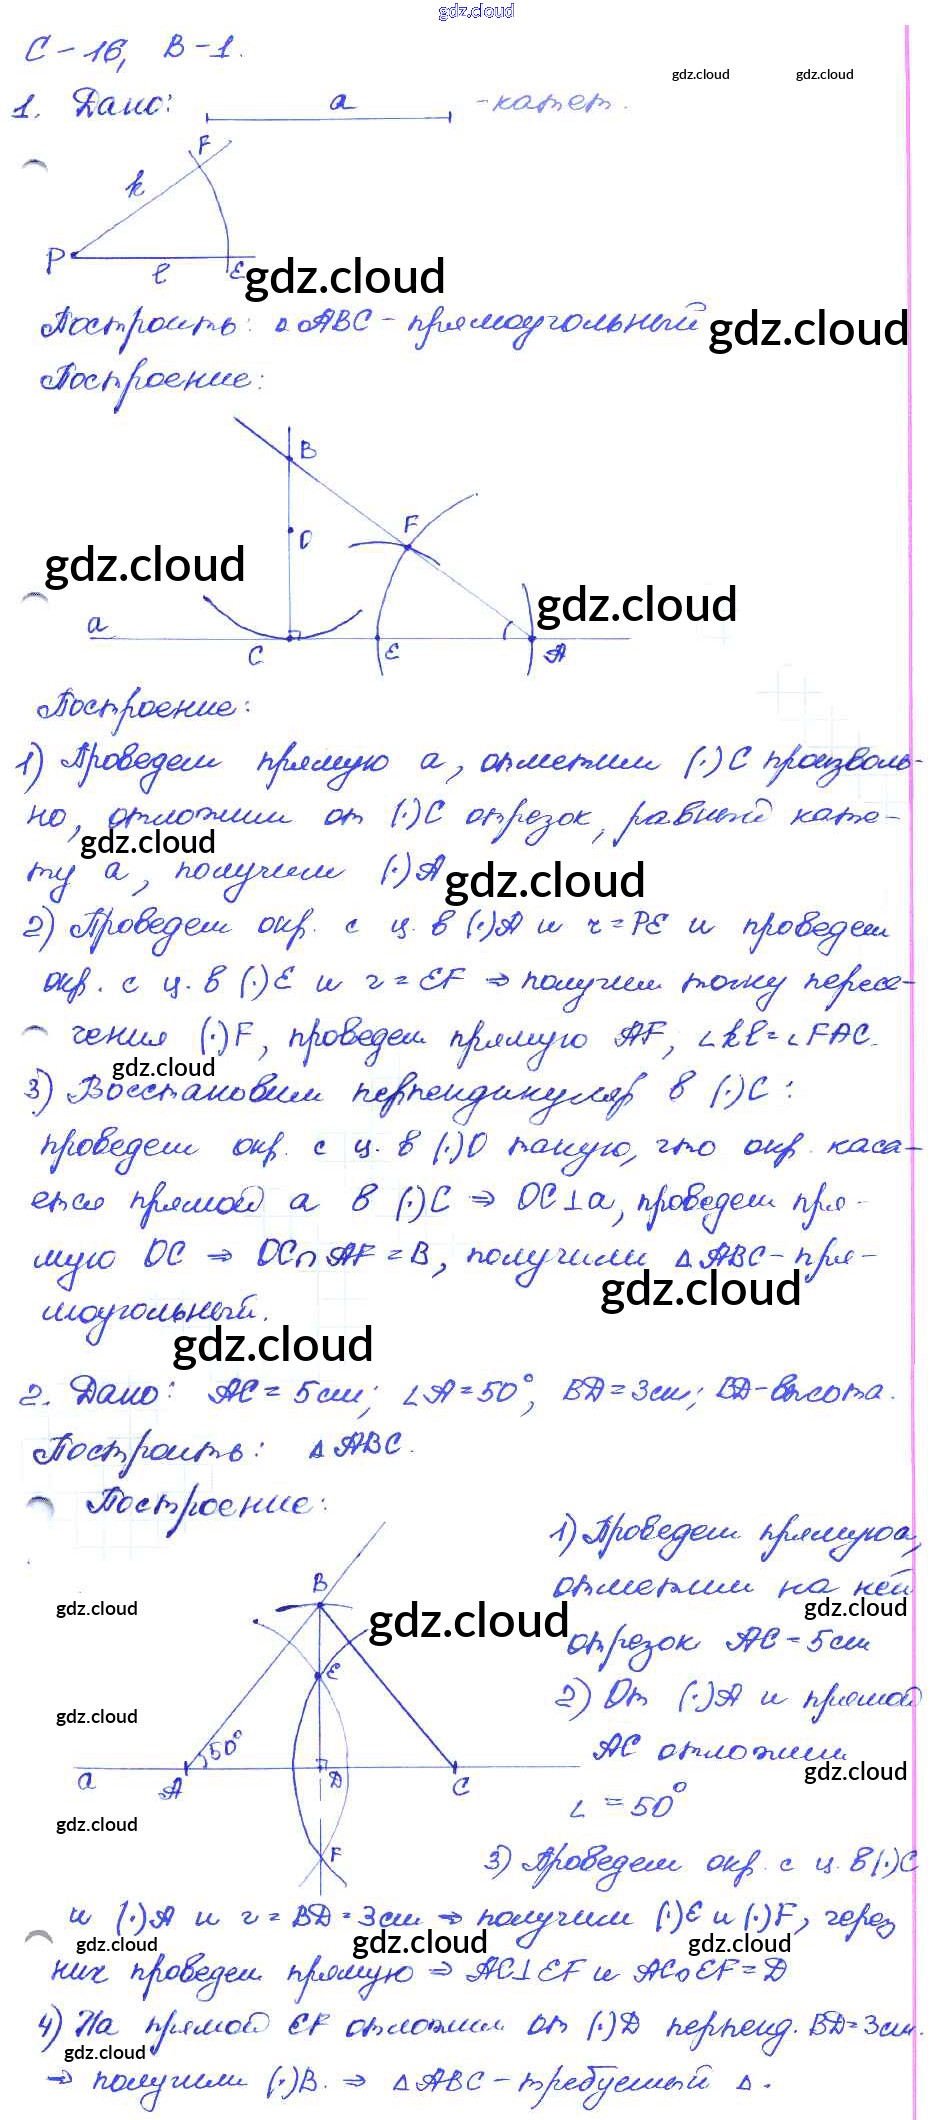 gdz.cloud
С-16, В-1.
gdz.cloud gdz.cloud
1. Дано: a - катет.
F
k
P ℓ E gdz.cloud
Построить: △ABC - прямоугольный gdz.cloud
Построение:
B
O F
gdz.cloud
gdz.cloud
a
C E A
Построение:
1) Проведем прямую a, отметим (·)C произволь-
но, отложим от (·)C отрезок, равный кате-
gdz.cloud
ту a, получим (·)A gdz.cloud
2) Проведем окр. с ц. в (·)A и r=PE и проведем
окр. с ц. в (·)E и r=EF ⇒ получим точку пересе-
чения (·)F, проведем прямую AF, ∠kℓ=∠FAC.
gdz.cloud
3) Восстановим перпендикуляр в (·)C:
проведем окр. с ц. в (·)O такую, что окр. каса-
ется прямой a в (·)C ⇒ OC⊥a, проведем пря-
мую OC ⇒ OC∩AF=B, получили △ABC - пря-
gdz.cloud
моугольный.
gdz.cloud
2. Дано: AC=5см; ∠A=50°, BD=3см; BD-высота.
Построить: △ABC.
Построение:
1) Проведем прямую a,
B
gdz.cloud gdz.cloud отметим на ней
gdz.cloud
отрезок AC=5см
E
2) От (·)A и прямой
gdz.cloud
50° AC отложим
a A D C gdz.cloud
∠=50°
gdz.cloud
F 3) Проведем окр. с ц. в (·)C
и (·)A и r=BD=3см ⇒ получим (·)E и (·)F, через
gdz.cloud gdz.cloud gdz.cloud
них проведем прямую ⇒ AC⊥EF и AC∩EF=D
4) На прямой EF отложим от (·)D перпенд. BD=3см.
gdz.cloud
⇒ получили (·)B. ⇒ △ABC - требуемый △.